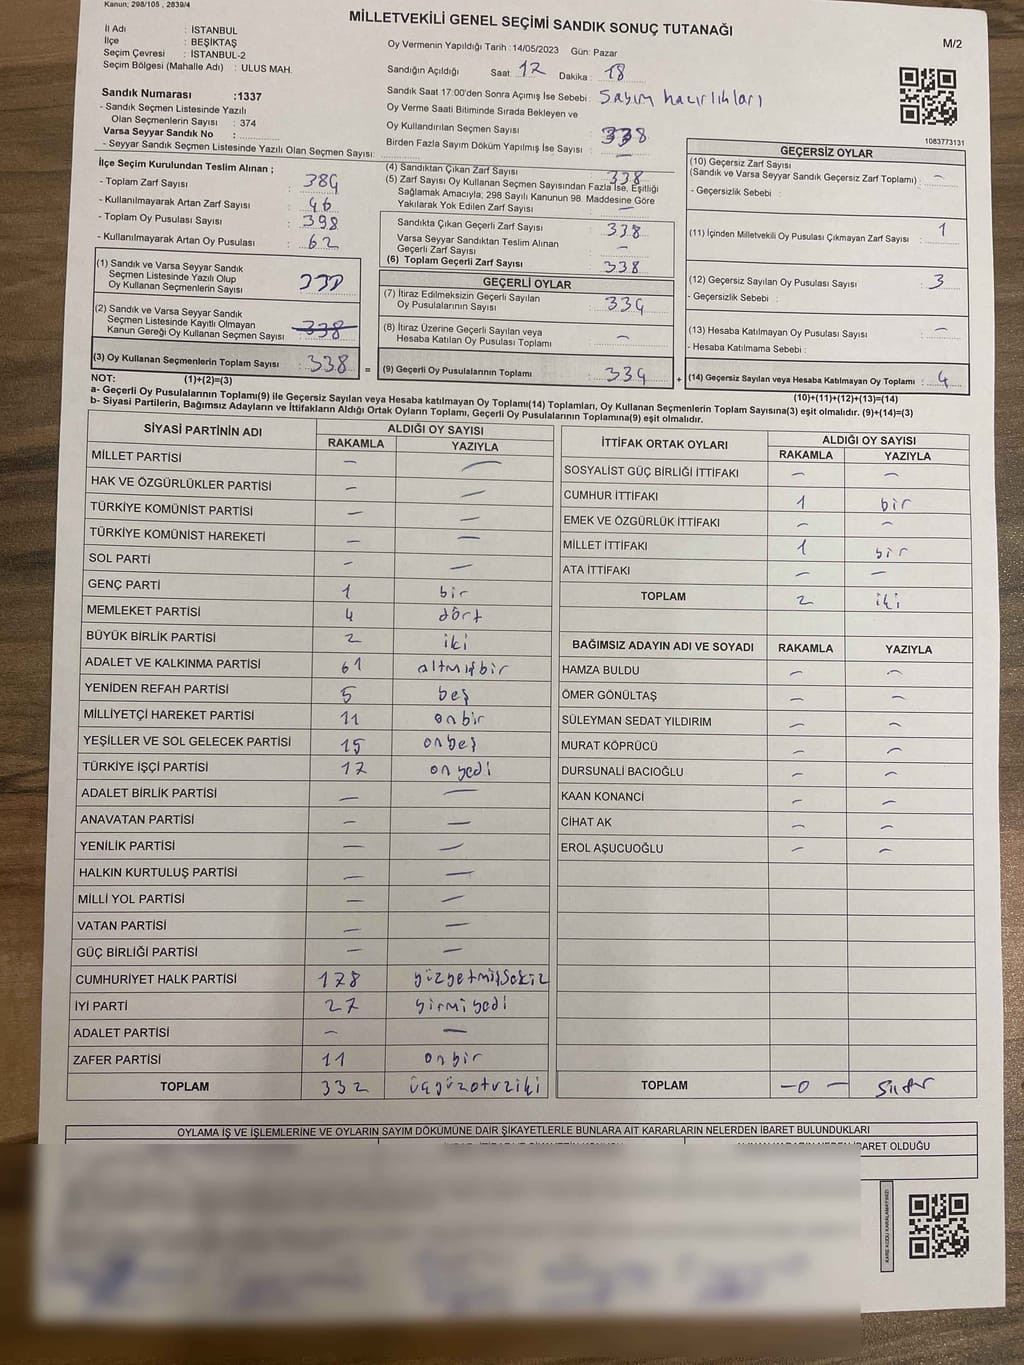 Kanun: 298/105 , 2839/4
MİLLETVEKİLİ GENEL SEÇİMİ SANDIK SONUÇ TUTANAĞI
M/2
İl Adı : İSTANBUL
İlçe : BEŞİKTAŞ
Seçim Çevresi : İSTANBUL-2
Seçim Bölgesi (Mahalle Adı) : ULUS MAH.
Sandık Numarası :1337
- Sandık Seçmen Listesinde Yazılı
Olan Seçmenlerin Sayısı : 374
Varsa Seyyar Sandık No :
- Seyyar Sandık Seçmen Listesinde Yazılı Olan Seçmen Sayısı:
Oy Vermenin Yapıldığı Tarih :14/05/2023 Gün: Pazar
Sandığın Açıldığı Saat: 17 Dakika : 18
Sandık Saat 17:00'den Sonra Açımış İse Sebebi : Sayım hazırlıkları
Oy Verme Saati Bitiminde Sırada Bekleyen ve
Oy Kullandırılan Seçmen Sayısı : 338
Birden Fazla Sayım Döküm Yapılmış İse Sayısı : —
1083773131
İlçe Seçim Kurulundan Teslim Alınan ;
- Toplam Zarf Sayısı : 384
- Kullanılmayarak Artan Zarf Sayısı : 46
- Toplam Oy Pusulası Sayısı : 398
- Kullanılmayarak Artan Oy Pusulası : 62
(1) Sandık ve Varsa Seyyar Sandık
Seçmen Listesinde Yazılı Olup
Oy Kullanan Seçmenlerin Sayısı
(2) Sandık ve Varsa Seyyar Sandık
Seçmen Listesinde Kayıtlı Olmayan
Kanun Gereği Oy Kullanan Seçmen Sayısı : 338
(3) Oy Kullanan Seçmenlerin Toplam Sayısı : 338 =
(1)+(2)=(3)
(4) Sandıktan Çıkan Zarf Sayısı : 338
(5) Zarf Sayısı Oy Kullanan Seçmen Sayısından Fazla İse, Eşitliği
Sağlamak Amacıyla; 298 Sayılı Kanunun 98. Maddesine Göre
Yakılarak Yok Edilen Zarf Sayısı : —
Sandıkta Çıkan Geçerli Zarf Sayısı : 338
Varsa Seyyar Sandıktan Teslim Alınan
Geçerli Zarf Sayısı : —
(6) Toplam Geçerli Zarf Sayısı : 338
GEÇERLİ OYLAR
(7) İtiraz Edilmeksizin Geçerli Sayılan
Oy Pusulalarının Sayısı : 334
(8) İtiraz Üzerine Geçerli Sayılan veya
Hesaba Katılan Oy Pusulası Toplamı : —
(9) Geçerli Oy Pusulalarının Toplamı : 334 +
GEÇERSİZ OYLAR
(10) Geçersiz Zarf Sayısı
(Sandık ve Varsa Seyyar Sandık Geçersiz Zarf Toplamı) : —
- Geçersizlik Sebebi :
(11) İçinden Milletvekili Oy Pusulası Çıkmayan Zarf Sayısı : 1
(12) Geçersiz Sayılan Oy Pusulası Sayısı : 3
- Geçersizlik Sebebi :
(13) Hesaba Katılmayan Oy Pusulası Sayısı : —
- Hesaba Katılmama Sebebi :
(14) Geçersiz Sayılan veya Hesaba Katılmayan Oy Toplamı : 4
(10)+(11)+(12)+(13)=(14)
NOT:
a- Geçerli Oy Pusulalarının Toplamı(9) ile Geçersiz Sayılan veya Hesaba katılmayan Oy Toplamı(14) Toplamları, Oy Kullanan Seçmenlerin Toplam Sayısına(3) eşit olmalıdır. (9)+(14)=(3)
b- Siyasi Partilerin, Bağımsız Adayların ve İttifakların Aldığı Ortak Oyların Toplamı, Geçerli Oy Pusulalarının Toplamına(9) eşit olmalıdır.
SİYASİ PARTİNİN ADI ALDIĞI OY SAYISI
RAKAMLA YAZIYLA
MİLLET PARTİSİ — —
HAK VE ÖZGÜRLÜKLER PARTİSİ — —
TÜRKİYE KOMÜNİST PARTİSİ — —
TÜRKİYE KOMÜNİST HAREKETİ — —
SOL PARTİ — —
GENÇ PARTİ 1 bir
MEMLEKET PARTİSİ 4 dört
BÜYÜK BİRLİK PARTİSİ 2 iki
ADALET VE KALKINMA PARTİSİ 61 altmışbir
YENİDEN REFAH PARTİSİ 5 beş
MİLLİYETÇİ HAREKET PARTİSİ 11 onbir
YEŞİLLER VE SOL GELECEK PARTİSİ 15 onbeş
TÜRKİYE İŞÇİ PARTİSİ 17 onyedi
ADALET BİRLİK PARTİSİ — —
ANAVATAN PARTİSİ — —
YENİLİK PARTİSİ — —
HALKIN KURTULUŞ PARTİSİ — —
MİLLİ YOL PARTİSİ — —
VATAN PARTİSİ — —
GÜÇ BİRLİĞİ PARTİSİ — —
CUMHURİYET HALK PARTİSİ 178 yüzyetmişsekiz
İYİ PARTİ 27 yirmiyedi
ADALET PARTİSİ — —
ZAFER PARTİSİ 11 onbir
TOPLAM 332 üçyüzotuziki
İTTİFAK ORTAK OYLARI ALDIĞI OY SAYISI
RAKAMLA YAZIYLA
SOSYALİST GÜÇ BİRLİĞİ İTTİFAKI — —
CUMHUR İTTİFAKI 1 bir
EMEK VE ÖZGÜRLÜK İTTİFAKI — —
MİLLET İTTİFAKI 1 bir
ATA İTTİFAKI — —
TOPLAM 2 iki
BAĞIMSIZ ADAYIN ADI VE SOYADI RAKAMLA YAZIYLA
HAMZA BULDU — —
ÖMER GÖNÜLTAŞ — —
SÜLEYMAN SEDAT YILDIRIM — —
MURAT KÖPRÜCÜ — —
DURSUNALİ BACIOĞLU — —
KAAN KONANCİ — —
CİHAT AK — —
EROL AŞUCUOĞLU — —
TOPLAM —0— Sıfır
OYLAMA İŞ VE İŞLEMLERİNE VE OYLARIN SAYIM DÖKÜMÜNE DAİR ŞİKAYETLERLE BUNLARA AİT KARARLARIN NELERDEN İBARET BULUNDUKLARI
İBARET OLDUĞU
KARE KODU KARALAMAYINIZ!